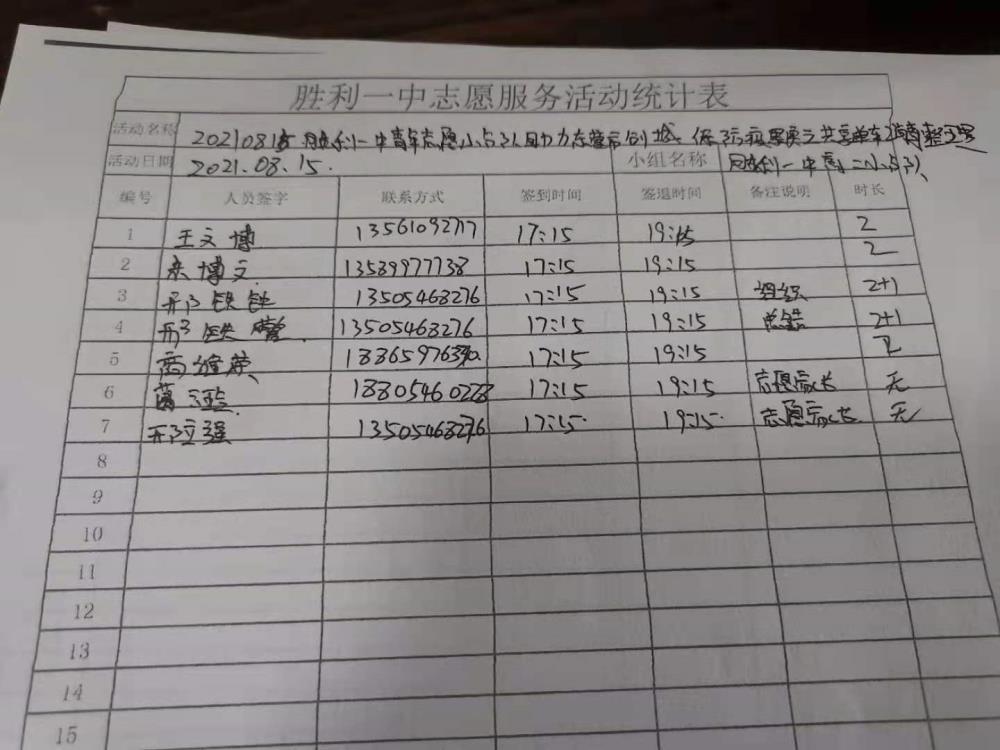 胜利一中志愿服务活动统计表
活动名称 20210815胜利一中青年志愿小分队助力东营市创城
活动日期 2021.08.15. 小组名称 胜利一中
编号 人员签字 联系方式 签到时间 签退时间 备注说明 时长
1 王文博 13561092717 17:15 19:15 2
2 博文 13589977738 17:15 19:15 2
3 邢铁 13505468276 17:15 19:15 组织 2+1
4 邢铁 13505468276 17:15 19:15 总结 2+1
5 17:15 19:15 2
6 18805460228 17:15 19:15 志愿家长 无
7 邢立强 13505468276 17:15 19:15 志愿家长 无
8
9
10
11
12
13
14
15